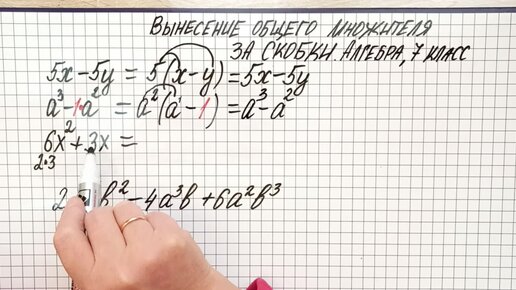 ВЫНЕСЕНИЕ ОБЩЕГО МНОЖИТЕЛЯ
ЗА СКОБКИ. АЛГЕБРА, 7 КЛАСС
5x - 5y = 5(x - y) = 5x - 5y
a³ - 1·a² = a²(a - 1) = a³ - a²
6x² + 3x =
2·3
2 b² - 4a³b + 6a²b³